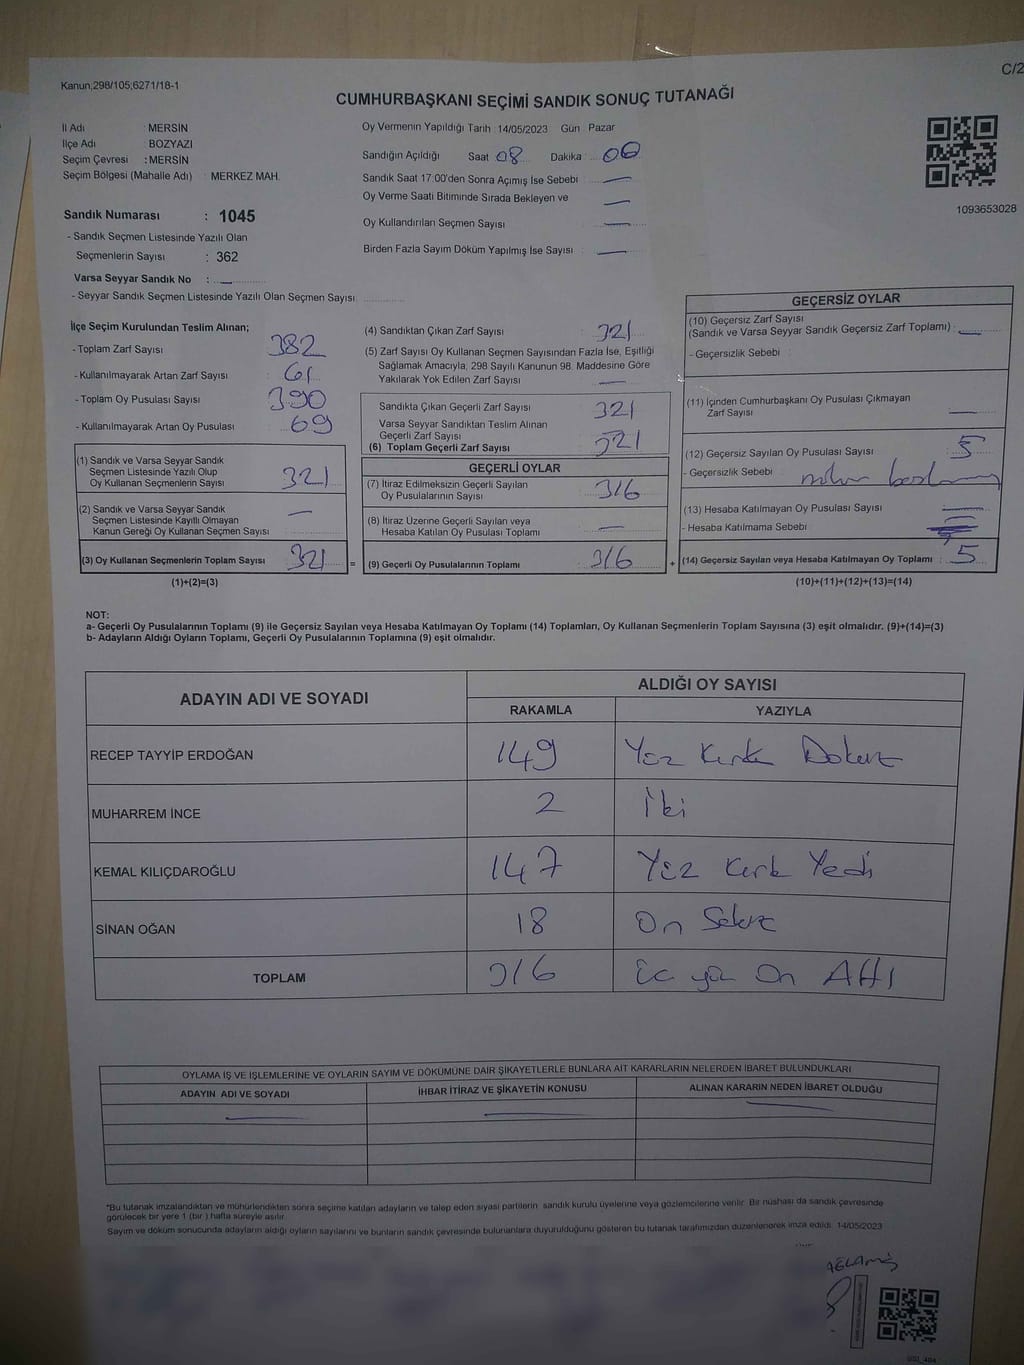 Kanun;298/105;6271/18-1
C/2
CUMHURBAŞKANI SEÇİMİ SANDIK SONUÇ TUTANAĞI
İl Adı : MERSİN
İlçe Adı : BOZYAZI
Seçim Çevresi : MERSİN
Seçim Bölgesi (Mahalle Adı) : MERKEZ MAH.
Sandık Numarası : 1045
- Sandık Seçmen Listesinde Yazılı Olan
Seçmenlerin Sayısı : 362
Varsa Seyyar Sandık No : —
- Seyyar Sandık Seçmen Listesinde Yazılı Olan Seçmen Sayısı
Oy Vermenin Yapıldığı Tarih : 14/05/2023 Gün Pazar
Sandığın Açıldığı Saat 08 Dakika : 00
Sandık Saat 17:00'den Sonra Açımış İse Sebebi : —
Oy Verme Saati Bitiminde Sırada Bekleyen ve —
Oy Kullandırılan Seçmen Sayısı : —
Birden Fazla Sayım Döküm Yapılmış İse Sayısı : —
1093653028
İlçe Seçim Kurulundan Teslim Alınan;
- Toplam Zarf Sayısı : 382
- Kullanılmayarak Artan Zarf Sayısı : 61
- Toplam Oy Pusulası Sayısı : 390
- Kullanılmayarak Artan Oy Pusulası : 69
(1) Sandık ve Varsa Seyyar Sandık
Seçmen Listesinde Yazılı Olup
Oy Kullanan Seçmenlerin Sayısı : 321
(2) Sandık ve Varsa Seyyar Sandık
Seçmen Listesinde Kayıtlı Olmayan
Kanun Gereği Oy Kullanan Seçmen Sayısı : —
(3) Oy Kullanan Seçmenlerin Toplam Sayısı : 321
(1)+(2)=(3)
(4) Sandıktan Çıkan Zarf Sayısı : 321
(5) Zarf Sayısı Oy Kullanan Seçmen Sayısından Fazla İse, Eşitliği
Sağlamak Amacıyla, 298 Sayılı Kanunun 98. Maddesine Göre
Yakılarak Yok Edilen Zarf Sayısı : —
Sandıkta Çıkan Geçerli Zarf Sayısı : 321
Varsa Seyyar Sandıktan Teslim Alınan
Geçerli Zarf Sayısı :
(6) Toplam Geçerli Zarf Sayısı : 321
GEÇERLİ OYLAR
(7) İtiraz Edilmeksizin Geçerli Sayılan
Oy Pusulalarının Sayısı : 316
(8) İtiraz Üzerine Geçerli Sayılan veya
Hesaba Katılan Oy Pusulası Toplamı : —
= (9) Geçerli Oy Pusulalarının Toplamı : 316
GEÇERSİZ OYLAR
(10) Geçersiz Zarf Sayısı
(Sandık ve Varsa Seyyar Sandık Geçersiz Zarf Toplamı) : —
- Geçersizlik Sebebi :
(11) İçinden Cumhurbaşkanı Oy Pusulası Çıkmayan
Zarf Sayısı : —
(12) Geçersiz Sayılan Oy Pusulası Sayısı : 5
- Geçersizlik Sebebi :
(13) Hesaba Katılmayan Oy Pusulası Sayısı : —
- Hesaba Katılmama Sebebi :
+ (14) Geçersiz Sayılan veya Hesaba Katılmayan Oy Toplamı : 5
(10)+(11)+(12)+(13)=(14)
NOT:
a- Geçerli Oy Pusulalarının Toplamı (9) ile Geçersiz Sayılan veya Hesaba Katılmayan Oy Toplamı (14) Toplamları, Oy Kullanan Seçmenlerin Toplam Sayısına (3) eşit olmalıdır. (9)+(14)=(3)
b- Adayların Aldığı Oyların Toplamı, Geçerli Oy Pusulalarının Toplamına (9) eşit olmalıdır.
ADAYIN ADI VE SOYADI ALDIĞI OY SAYISI
RAKAMLA YAZIYLA
RECEP TAYYİP ERDOĞAN 149 Yüz Kırk Dokuz
MUHARREM İNCE 2 İki
KEMAL KILIÇDAROĞLU 147 Yüz Kırk Yedi
SİNAN OĞAN 18 On Sekiz
TOPLAM 316 Üç yüz On Altı
OYLAMA İŞ VE İŞLEMLERİNE VE OYLARIN SAYIM VE DÖKÜMÜNE DAİR ŞİKAYETLERLE BUNLARA AİT KARARLARIN NELERDEN İBARET BULUNDUKLARI
ADAYIN ADI VE SOYADI İHBAR İTİRAZ VE ŞİKAYETİN KONUSU ALINAN KARARIN NEDEN İBARET OLDUĞU
— — —
*Bu tutanak imzalandıktan ve mühürlendikten sonra seçime katılan adayların ve talep eden siyasi partilerin sandık kurulu üyelerine veya gözlemcilerine verilir. Bir nüshası da sandık çevresinde
görülecek bir yere 1 (bir) hafta süreyle asılır.
Sayım ve döküm sonucunda adayların aldığı oyların sayılarını ve bunların sandık çevresinde bulunanlara duyurulduğunu gösteren bu tutanak tarafımızdan düzenlenerek imza edildi. 14/05/2023